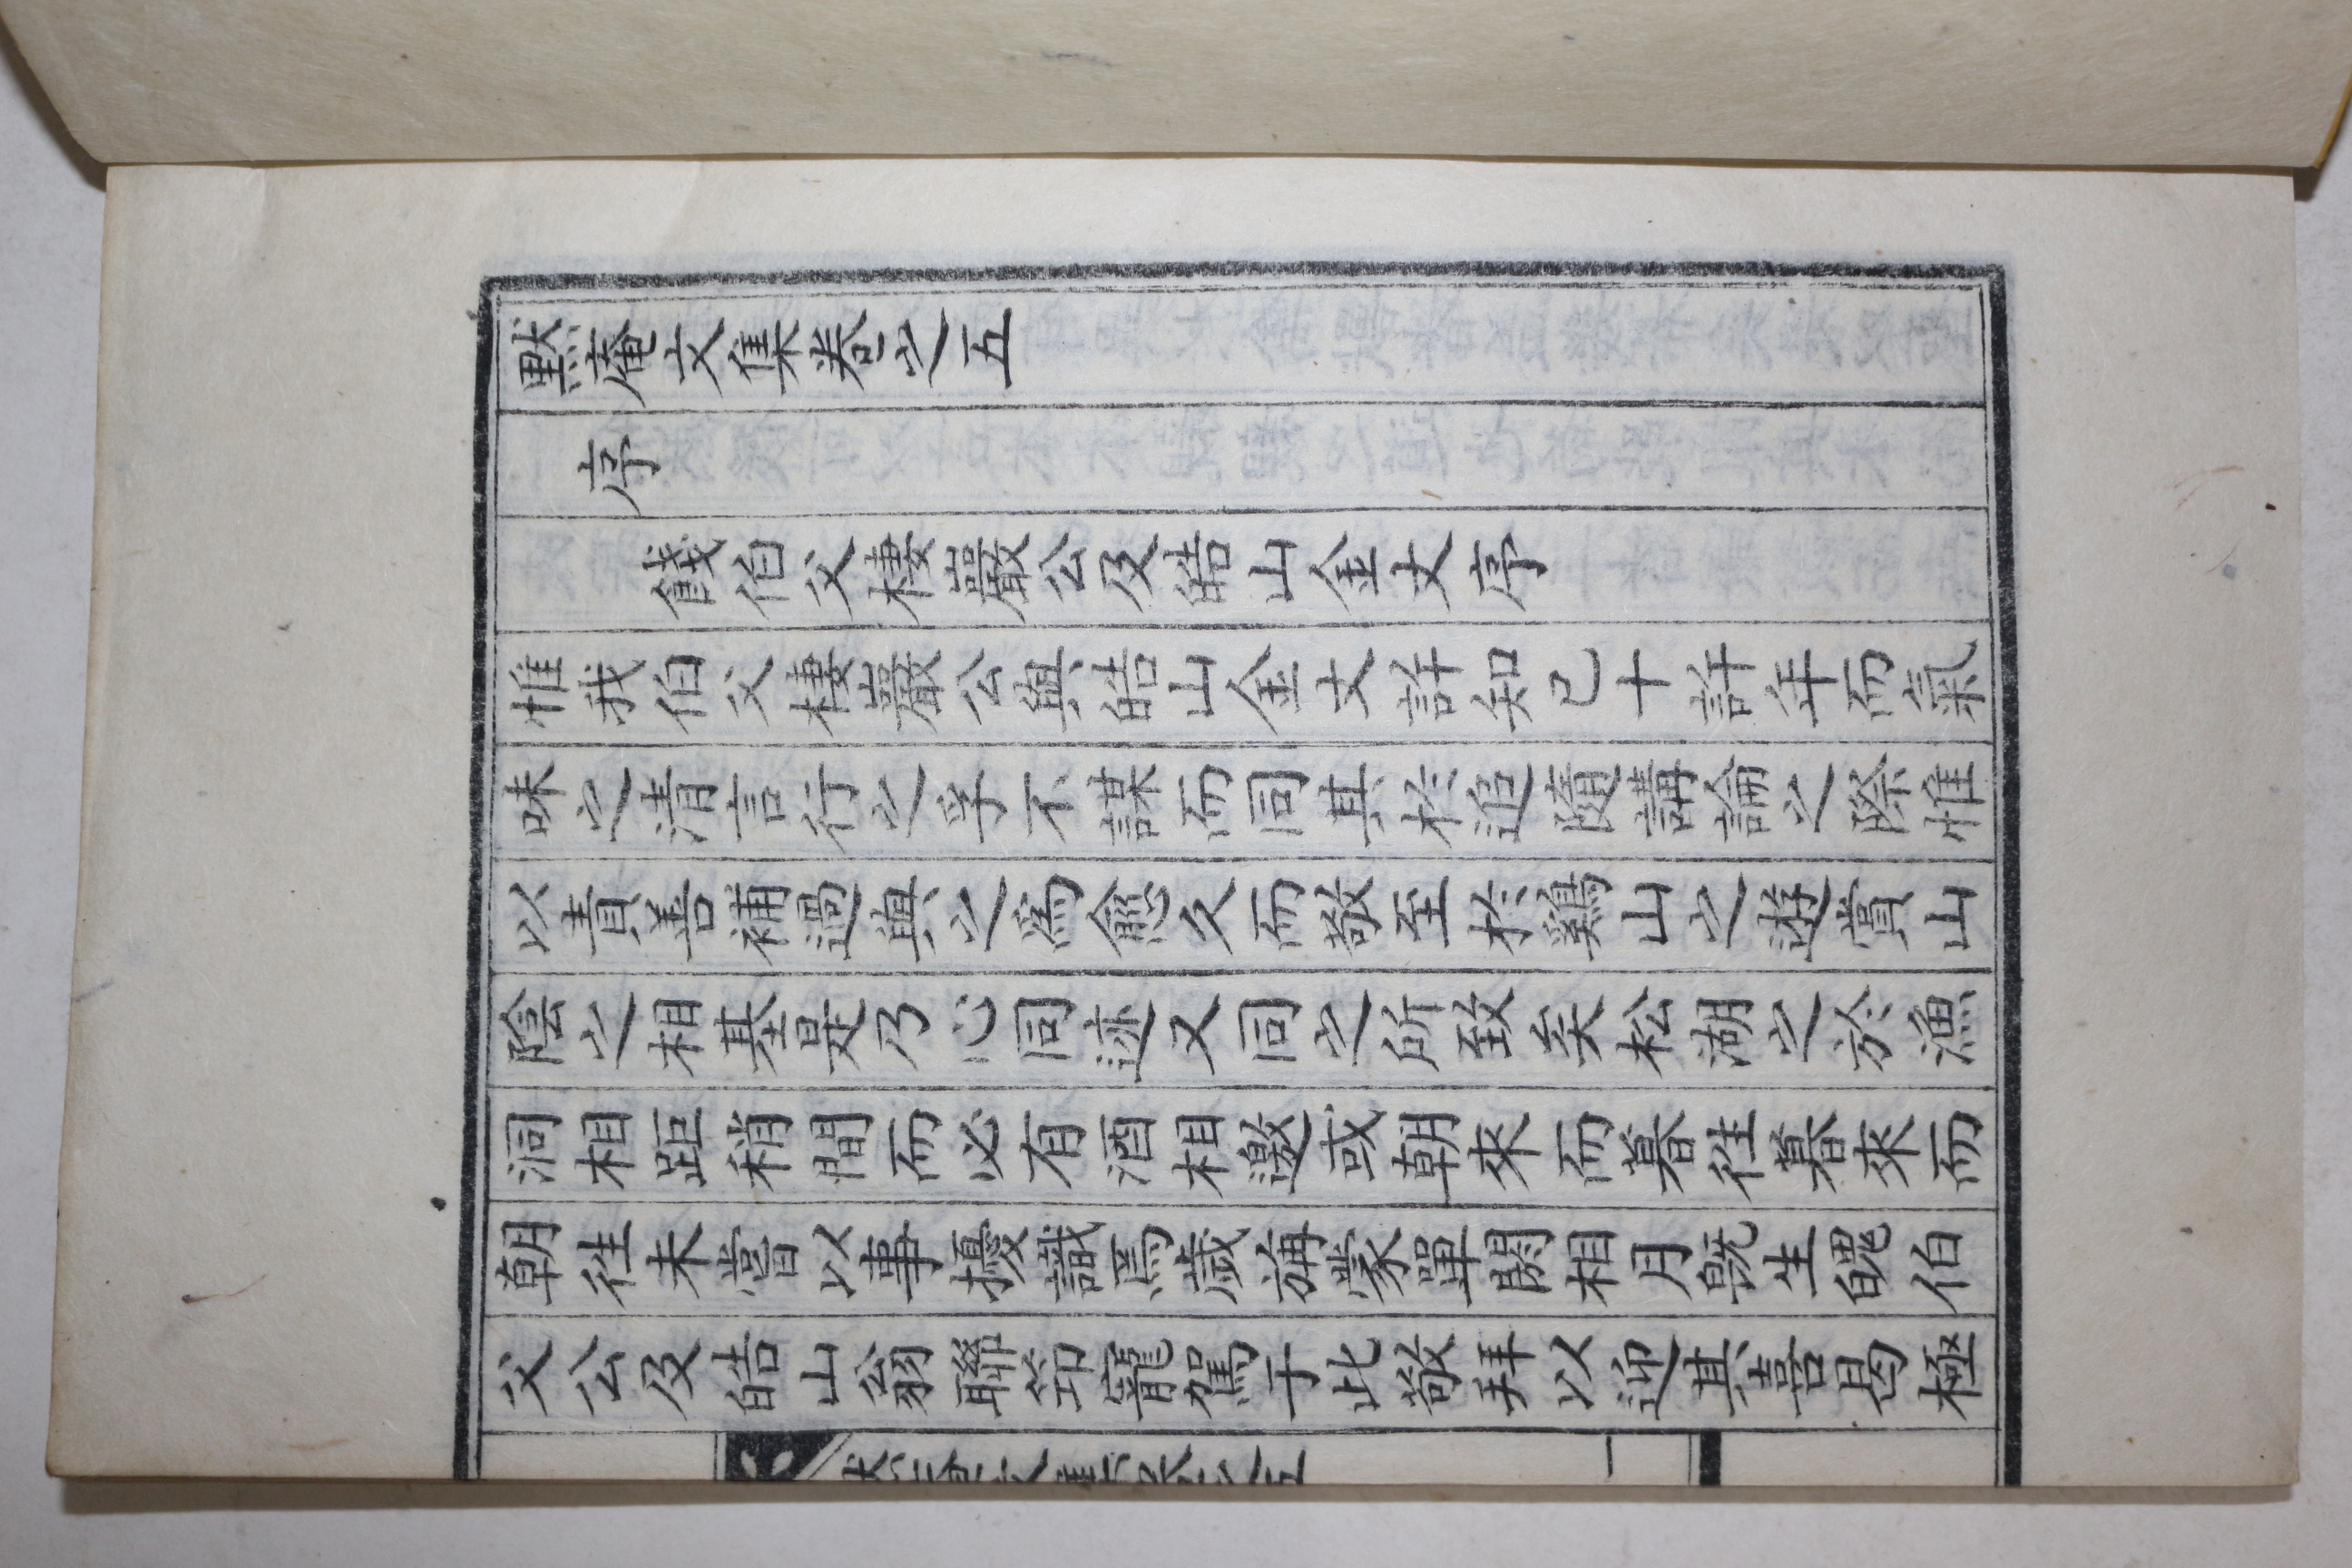 黙庵文集卷之五
序
餞伯父棲巖公及皓山金丈序
惟我伯父棲巖公與皓山金丈許知已十許年而氣
味之清言行之孚不謀而同其於追隨講論之際惟
以責善補過與之爲愈久而敬至於鷄山之遊賞山
陰之相基是乃心同迹又同之所致矣松湖之於漁
洞相距稍間而必有酒相邀或朝來而暮徃暮來而
朝徃未嘗以事擾識焉歲旃蒙單閼相月旣生魄伯
父公及皓山翁聯笻寵駕于此敬拜以迎其喜曷極
黙庵文集卷之五
一